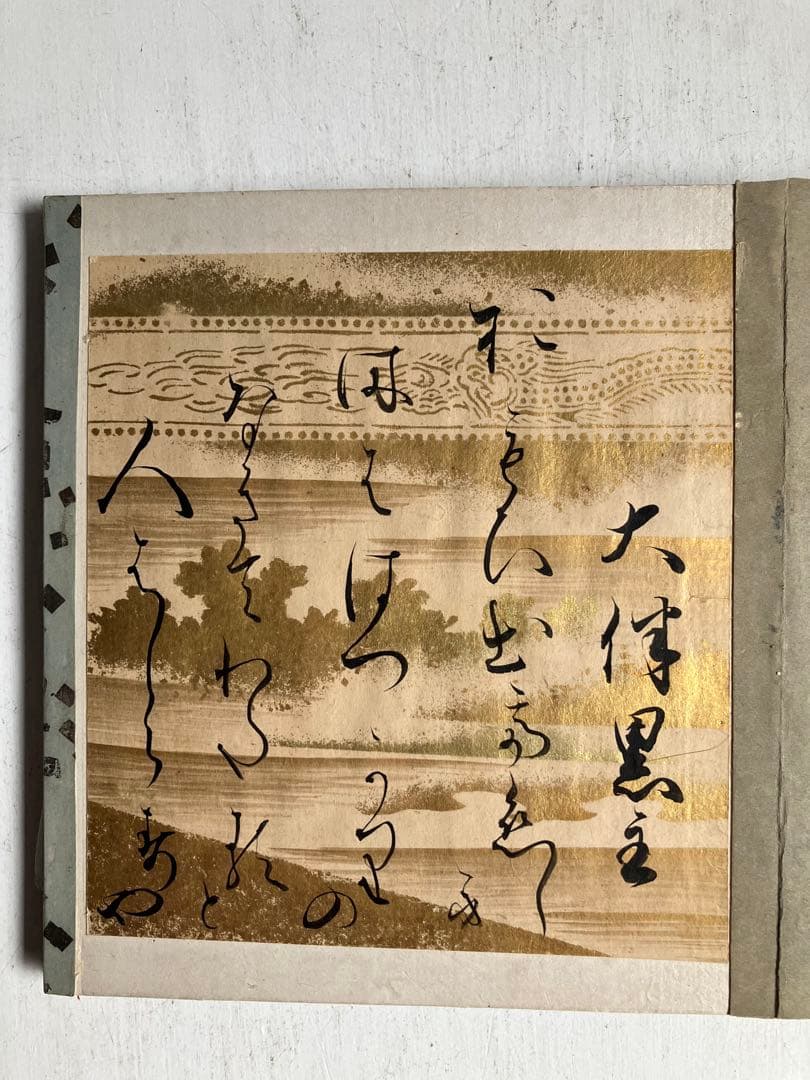 大伴黒主
おもひ出て恋し
き
時ははつかりの
なきてわたると
人はしらすや